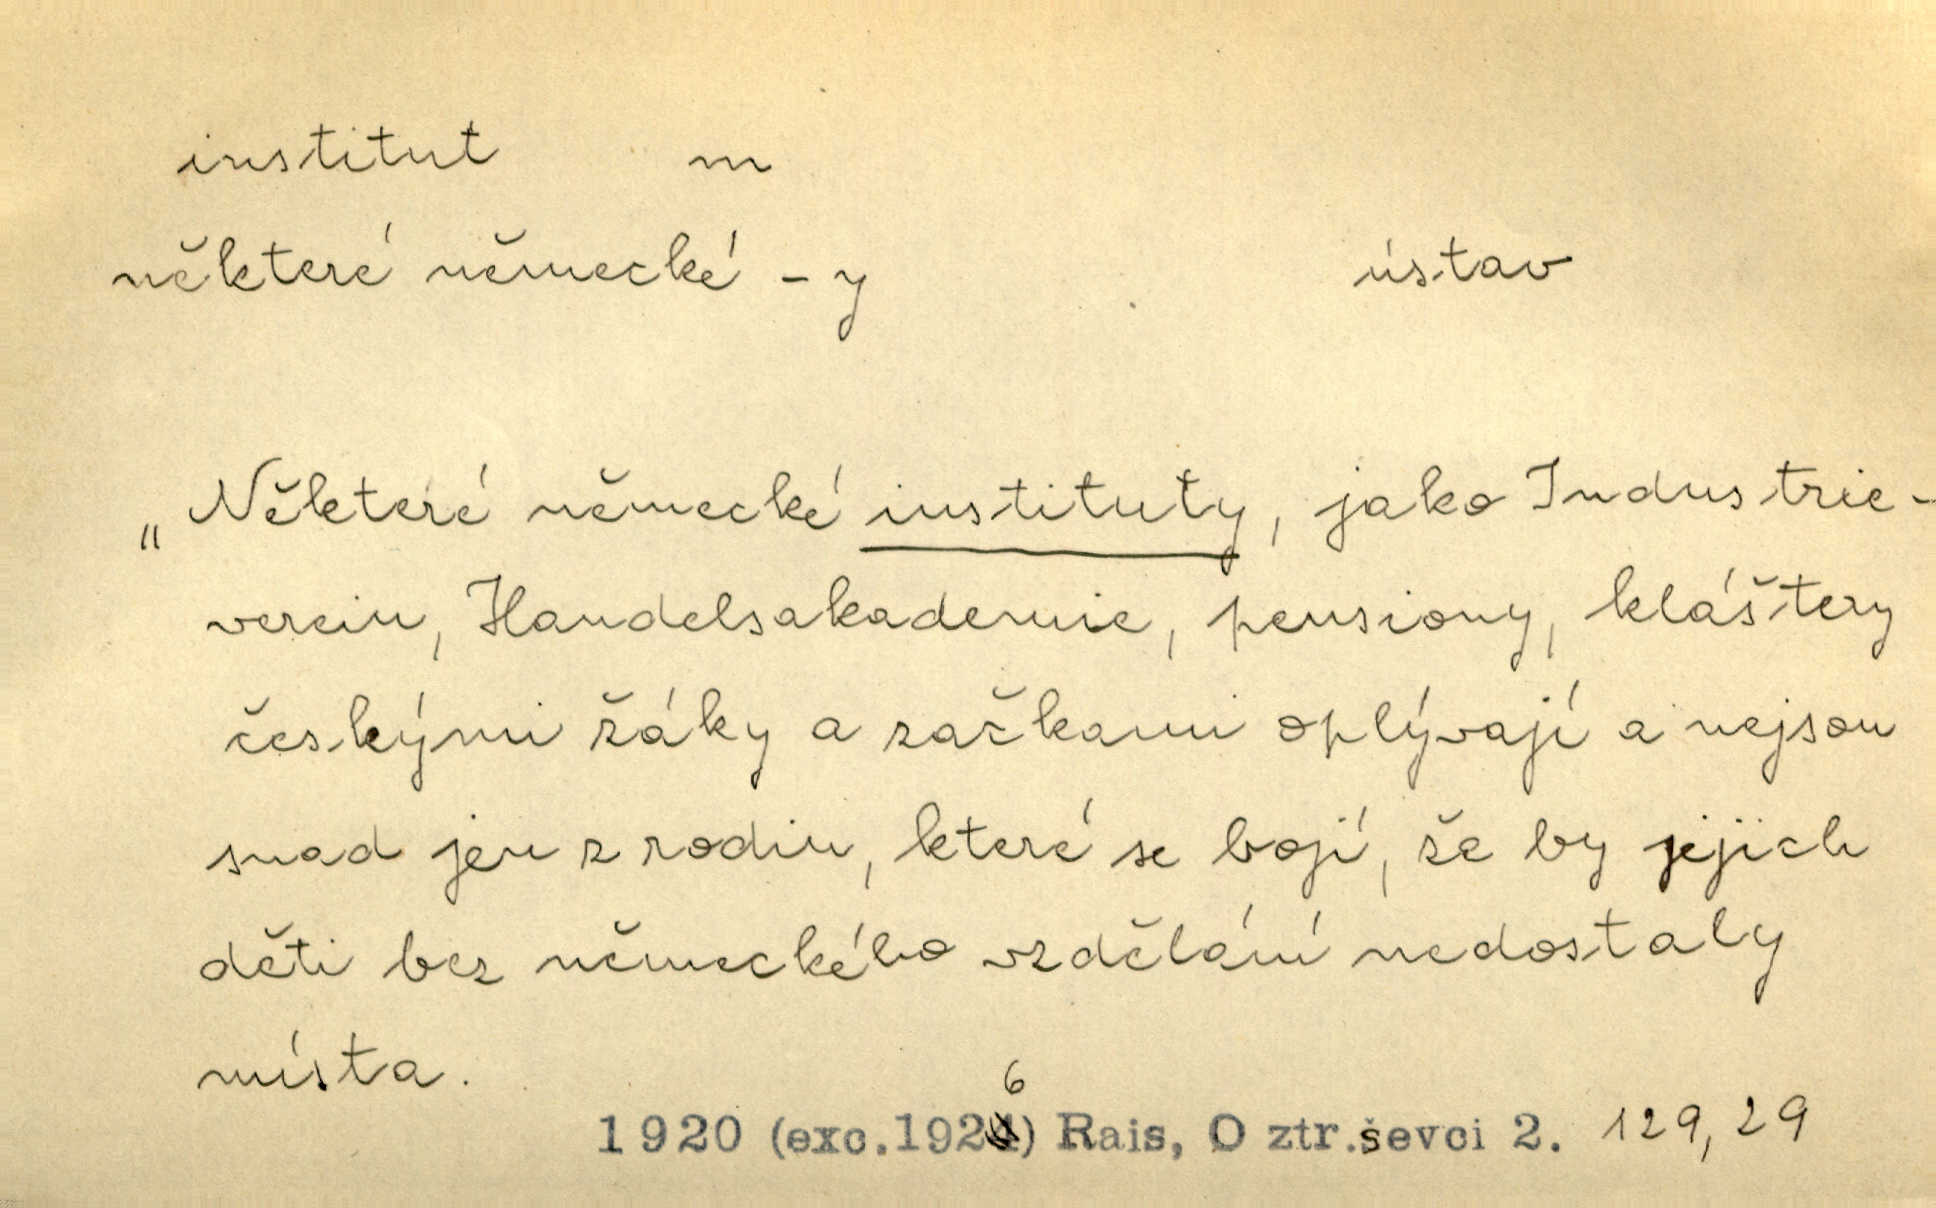 institut m
některé německé - y ústav
„Některé německé instituty, jako Industrie-
verein, Handelsakademie, pensiony, kláštery
českými žáky a začkami oplývají a nejsou
snad jen z rodin, které se bojí, že by jejich
děti bez německého vzdělání nedostaly
místa.
6
1920 (exc.1924) Rais, O ztr.ševci 2. 129, 29